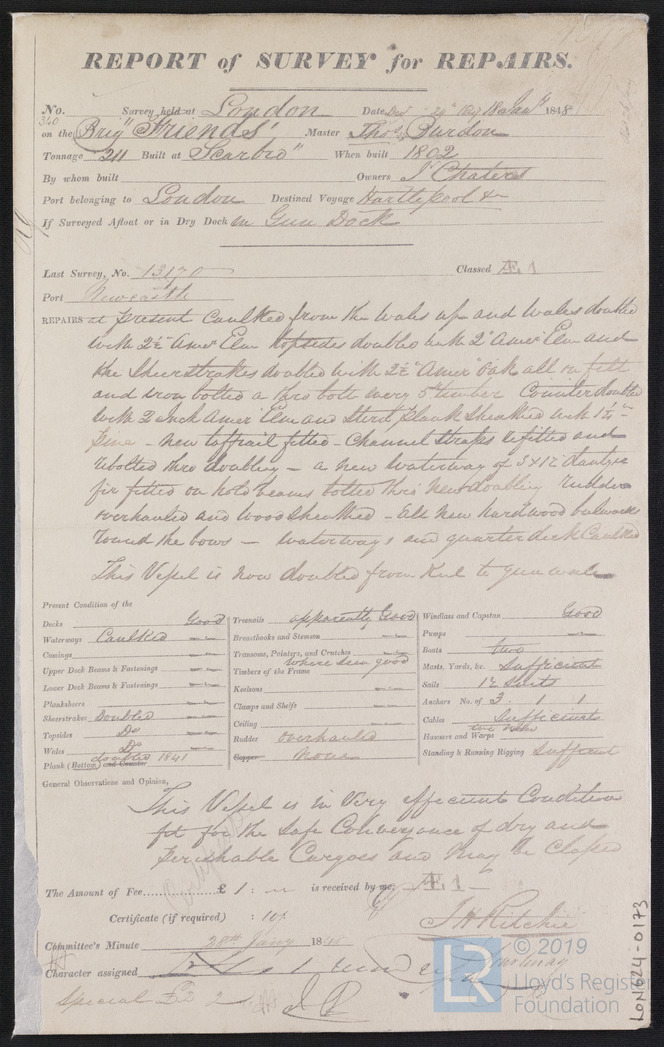 REPORT of SURVEY for REPAIRS.
No. 340 Survey held at London Date Dec 29th 18 Jany 1848
on the Brig "Friends" Master Thos Burdon
Tonnage 211 Built at Scarbro" When built 1802
By whom built Owners J Chaters
Port belonging to London Destined Voyage Hartlepool &c
If Surveyed Afloat or in Dry Dock in Gun Dock
Last Survey, No. 13170 Classed Æ 1
Port Newcastle
REPAIRS at present Caulked from the Wales up and Wales doubled
with 2½" Amer Elm topsides doubled with 2" Amer Elm and
the Sheerstrakes doubled with 2½" Amer Oak all on felt
and iron bolted a thro bolt every 5th timber Counter doubled
with 2 inch Amer Elm and Stern plank Sheathed with 1½"
new taffrail fitted - Channel Straps refitted and
rebolted thro doubling - a new waterway of 3 x 12 Dantzic
fir fitted on hold beams bolted thro new doubling rudder
overhauled and wood Sheathed - new hardwood bulwarks
round the bows - waterways and quarter deck Caulked
This Vessel is now doubled from Keel to gunwale
Present Condition of the
Decks Good
Waterways Caulked
Comings
Upper Deck Beams & Fastenings
Lower Deck Beams & Fastenings
Planksheers
Sheerstrakes doubled
Topsides Do
Wales Do
Plank (Bottom) and Counter doubled 1841
Treenails apparently Good
Breasthooks and Stemson
Transoms, Pointers, and Crutches
Timbers of the Frame where seen good
Keelsons
Clamps and Shelfs
Ceiling
Rudder overhauled
Copper None
Windlass and Capstan Good
Pumps
Boats two
Masts, Yards, &c. Sufficient
Sails 12 Suits
Anchors No. of 3 1 1
Cables Sufficient
Hawsers and Warps
Standing & Running Rigging Sufficient
General Observations and Opinion,
This Vessel is in Very efficient Condition
fit for the Safe Conveyance of dry and
Perishable Cargoes and may be Classed
Æ 1
The Amount of Fee £ 1 : - is received by me,
Certificate (if required) : 10/
J H Ritchie
Committee's Minute 28th Jany 1848
Character assigned
Special £2 2
© 2019
LR
Lloyd's Register
Foundation
LON624-0173